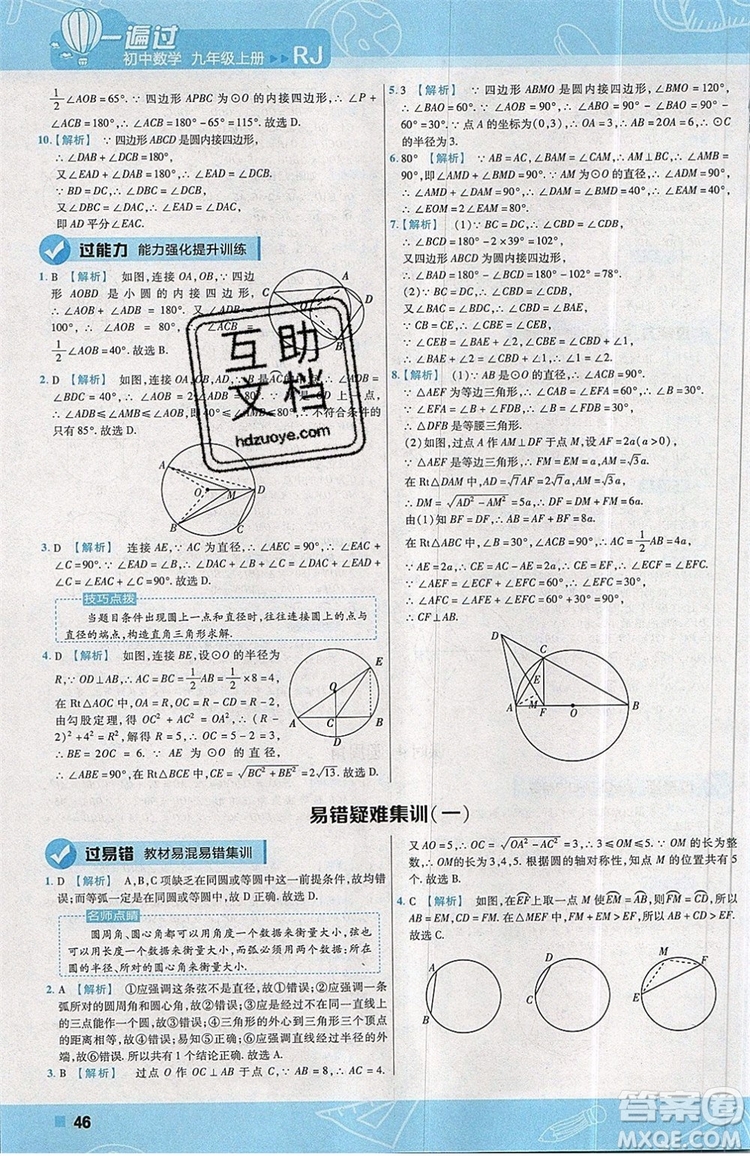 一遍过
初中数学 九年级上册 ▶▶ RJ
1/2∠AOB=65°. ∵ 四边形 APBC 为⊙O 的内接四边形, ∴ ∠P+
∠ACB=180°, ∴ ∠ACB=180°-65°=115°. 故选 D.
10.【解析】 ∵ 四边形 ABCD 是圆内接四边形,
∴ ∠DAB+∠DCB=180°,
又∠DAB+∠EAD=180°, ∴ ∠EAD=∠DCB.
∵ BD=DC, ∴ ∠DBC=∠DCB,
又∠DBC=∠DAC, ∴ ∠EAD=∠DAC,
即 AD 平分∠EAC.
过能力 能力强化提升训练
1. B 【解析】 如图,连接 OA,OB, ∵ 四边
形 AOBD 是小圆的内接四边形,
1/2∠AOB=40°. 故选 B.
2. D 【解析】 如图,连接 OA,OB,AD,
只有 85°. 故选 D.
A
O
M
D
B
C
3. D 【解析】 连接 AE, ∵ AC 为直径, ∴ ∠AEC=90°, ∴ ∠ACE+
∠EAC=90°. ∵ ∠EAD=∠DBE, ∴ ∠DBE+∠ACE=90°. 故选 D.
技巧点拨
当题目条件出现圆上一点和直径时,往往连接圆上的点与
直径的端点,构造直角三角形求解.
4. D 【解析】 如图,连接 BE,设⊙O 的半径为
R, ∵ OD⊥AB, ∴ AC=BC=1/2AB=1/2×8=4.
在 Rt△AOC 中, OA=R, OC=R-CD=R-2,
由勾股定理,得 OC²+AC²=OA², ∴ (R-
2)²+4²=R², 解得 R=5,
∴ OC=5-2=3, ∴ BE=2OC=6. ∵ AE 为⊙O 的直径, ∴ ∠ABE=
90°. 在 Rt△BCE 中, CE=√(BC²+BE²)=2√13. 故选 D.
E
O
A
C
B
D
5. 3 【解析】 ∵ 四边形 ABMO 是圆内接四边形, ∠BMO=120°,
∴ ∠BAO=60°. ∵ ∠AOB=90°, ∴ ∠ABO=90°-∠BAO=90°-
60°=30°. ∵ 点 A 的坐标为(0,3), ∴ OA=3, ∴ AB=2OA=6, ∴ ⊙C
的半径为 3.
6. 80° 【解析】 ∵ AB=AC, ∠BAM=∠CAM, ∴ AM⊥BC, ∴ ∠AMB=90°,
即∠AMD+∠BMD=90°. ∵ AM 为⊙O 的直径, ∴ ∠ADM=90°,
∴ ∠AMD+∠BAM=90°, ∴ ∠BAM=∠BMD=40°,
∴ ∠EOM=2∠EAM=80°.
7.【解析】 (1) ∵ BC=DC, ∴ ∠CBD=∠CDB=39°,
∴ ∠BCD=180°-2×39°=102°,
又四边形 ABCD 为圆内接四边形,
∴ ∠BAD=180°-∠BCD=180°-102°=78°.
(2) ∵ BC=CD, ∴ ∠CBD=∠CDB,
又∠BAC=∠BDC, ∴ ∠CBD=∠BAC.
∵ CB=CE, ∴ ∠CBE=∠CEB,
∴ ∠CBD+∠1=∠2+∠BAC, ∴ ∠1=∠2.
8.【解析】 (1) ∵ AC=AC, ∴ ∠CEA=∠CFA=60°.
∵ △AEF 为等边三角形, ∴ ∠CAB=∠EFA=60°,
∴ △DFB 是等腰三角形.
(2)如图,过点 A 作 AM⊥DF 于点 M,设 AF=2a(a>0),
∵ △AEF 是等边三角形, ∴ FM=EM=a, AM=√3a.
在 Rt△DAM 中, AD=√7AF=2√7a, AM=√3a,
∴ DM=√(AD²-AM²)=5a, ∴ DF=DM+FM=6a.
由(1)知 BF=DF, ∴ BF=DF=6a,
∴ AB=AF+BF=8a.
在 Rt△ABC 中, ∠B=30°, ∠ACB=90°, ∴ AC=1/2AB=4a,
∵ AE=2a, ∴ AE=CE=2a, ∴ ∠ECF=∠EFC.
∵ ∠AEF=∠ECF+∠EFC=60°, ∴ ∠EFC=30°,
∴ ∠AFC=∠AFE+∠EFC=60°+30°=90°,
∴ CF⊥AB.
D
C
E
A
M
F
O
B
易错疑难集训(一)
过易错 教材易混易错集训
1. D 【解析】 A,B,C 项缺乏在同圆或等圆中这一前提条件,故均错
误;而等弧包含了在同圆或等圆中这一条件,故 D 正确. 故选 D.
名师点睛
圆周角、圆心角都可以用一个数据来衡量大小,弦也可
以用长度这一个数据来衡量大小,而弧必须用两个数据(所在
圆的半径、所对的圆心角)来衡量大小.
2. A 【解析】 ①应强调这条弦不是直径,故①错误;②应强调同一条
弧所对的圆周角和圆心角,故②错误;③应强调不在同一直线上
的三个点,故③错误;④三角形的外心到三角形三个顶点
的距离相等,故④正确;⑤应强调在同圆或等圆中,故⑤错误;⑥应强调直线经过半径的外
端,故⑥错误. 所以共有 1 个结论正确. 故选 A.
3. B 【解析】 过点 O 作 OC⊥AB 于点 C, ∴ AC=4.
又 AO=5, ∴ OC=√(OA²-AC²)=3, ∴ OM 的长为整
数时,长为 3,4,5. 根据圆的轴对称性,知点 M 的位置共有 5
个. 故选 B.
4. C 【解析】 如图,在EF上取一点 M 使EM=FM=AB,则AB=EM=
FM,所以 AB=EM=CD. 在△MEF 中, FM+EM>EF,所以 AB+
CD>EF. 故选 C.
A
B
C
D
E
M
F
46
互助文档
hdzuoye.com
答案圈
MXQE.COM